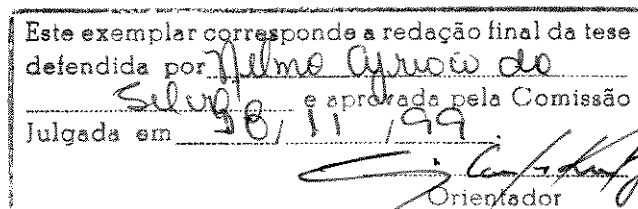 Este exemplar corresponde a redação final da tese
defendida por
Silva e aprovada pela Comissão
Julgada em / 11 / 99
Orientador